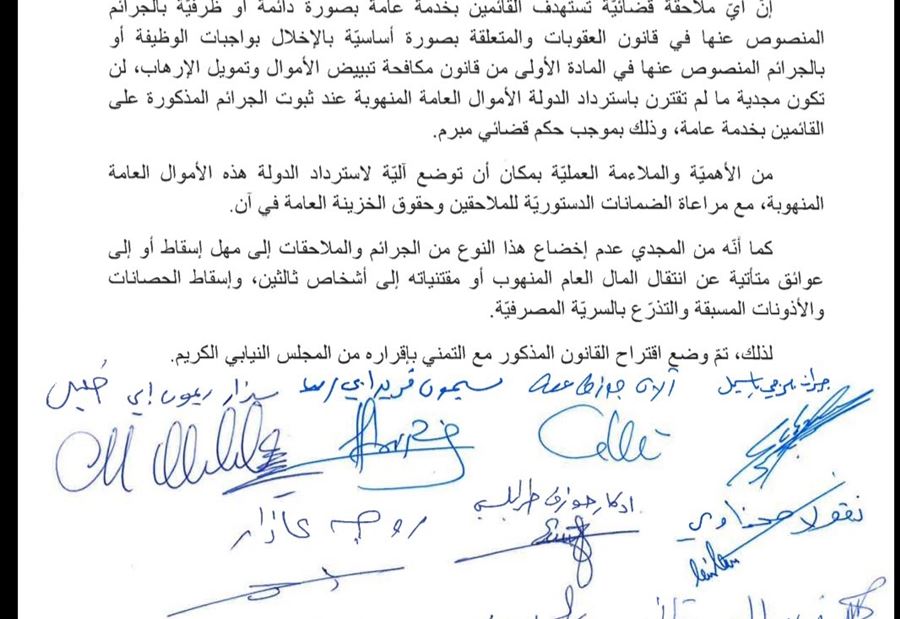 إنّ أيّ ملاحقة قضائيّة تستهدف القائمين بخدمة عامة بصورة دائمة أو ظرفيّة بالجرائم
المنصوص عنها في قانون العقوبات والمتعلقة بصورة أساسيّة بالإخلال بواجبات الوظيفة أو
بالجرائم المنصوص عنها في المادة الأولى من قانون مكافحة تبييض الأموال وتمويل الإرهاب، لن
تكون مجدية ما لم تقترن باسترداد الدولة الأموال العامة المنهوبة عند ثبوت الجرائم المذكورة على
القائمين بخدمة عامة، وذلك بموجب حكم قضائي مبرم.
من الأهميّة والملاءمة العمليّة بمكان أن توضع آليّة لاسترداد الدولة هذه الأموال العامة
المنهوبة، مع مراعاة الضمانات الدستوريّة للملاحقين وحقوق الخزينة العامة في آن.
كما أنّه من المجدي عدم إخضاع هذا النوع من الجرائم والملاحقات إلى مهل إسقاط أو إلى
عوائق متأتية عن انتقال المال العام المنهوب أو مقتنياته إلى أشخاص ثالثين، وإسقاط الحصانات
والأذونات المسبقة والتذرّع بالسريّة المصرفيّة.
لذلك، تمّ وضع اقتراح القانون المذكور مع التمني بإقراره من المجلس النيابي الكريم.
جبران جرجي باسيل
آلان جوزف عون
سيمون فريد ابي رميا
سيزار ريمون ابي خليل
نقولا صحناوي
ادكار جوزف طرابلسي
روجيه عازار